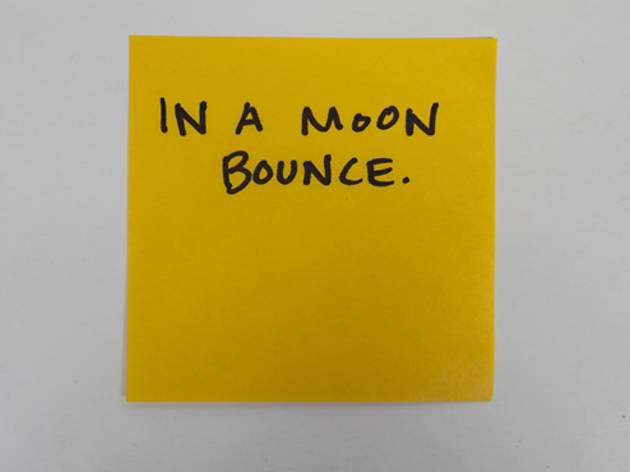 IN A MOON
BOUNCE.